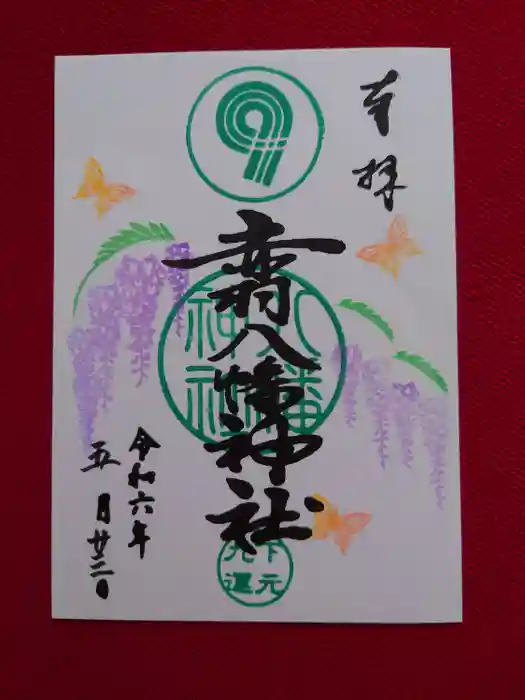 9
奉拝
赤羽八幡神社
八幡
神社
令和六年
五月廿二日
下元
九運